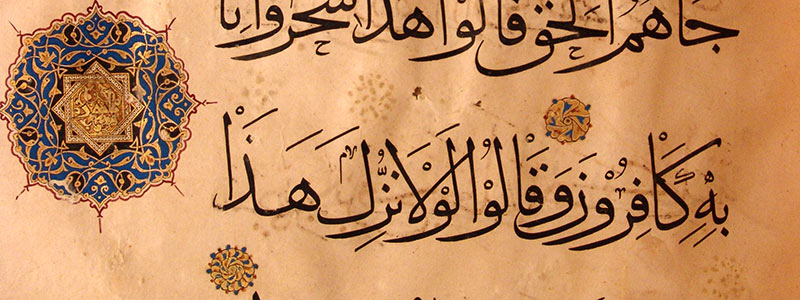 جاهم الحق قالوا هذا سحر وانا
بِهِ كَافِرُونَ وَقَالُوا لَوْلَا نُزِّلَ هَذَا